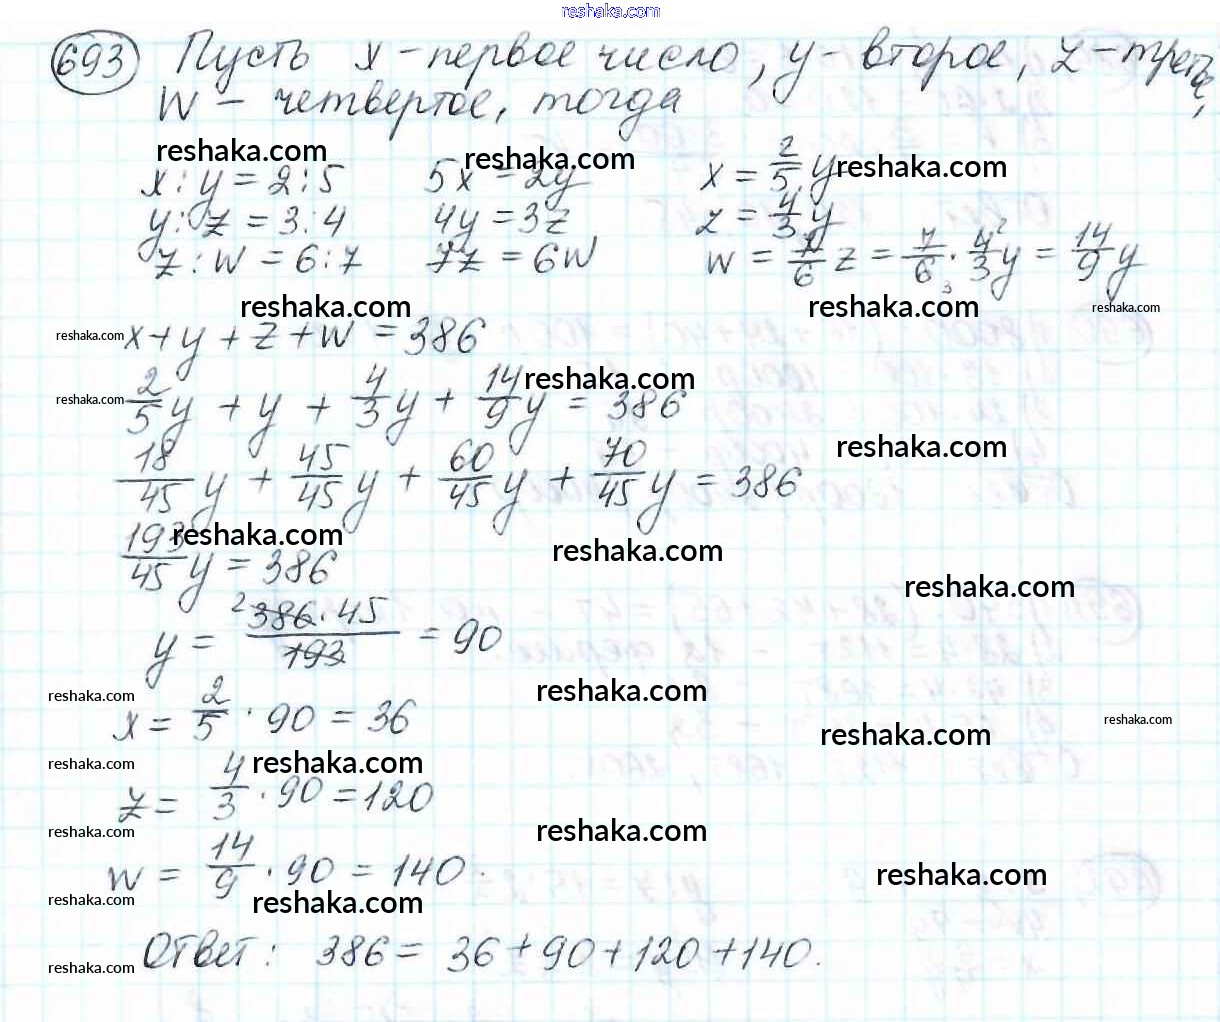 reshaka.com
693 Пусть x - первое число, y - второе, z - третье,
w - четвертое, тогда
reshaka.com reshaka.com reshaka.com
x : y = 2 : 5 5x = 2y x = 2/5 y
y : z = 3 : 4 4y = 3z z = 4/3 y
z : w = 6 : 7 7z = 6w w = 7/6 z = 7/6 · 4/3 y = 14/9 y
reshaka.com reshaka.com reshaka.com
reshaka.com x + y + z + w = 386
reshaka.com
reshaka.com 2/5 y + y + 4/3 y + 14/9 y = 386
reshaka.com
18/45 y + 45/45 y + 60/45 y + 70/45 y = 386
reshaka.com reshaka.com
193/45 y = 386
reshaka.com
y = 386 · 45 / 193 = 90
reshaka.com reshaka.com
x = 2/5 · 90 = 36
reshaka.com reshaka.com
reshaka.com reshaka.com
z = 4/3 · 90 = 120
reshaka.com reshaka.com
w = 14/9 · 90 = 140.
reshaka.com
reshaka.com reshaka.com
Ответ: 386 = 36 + 90 + 120 + 140.
reshaka.com